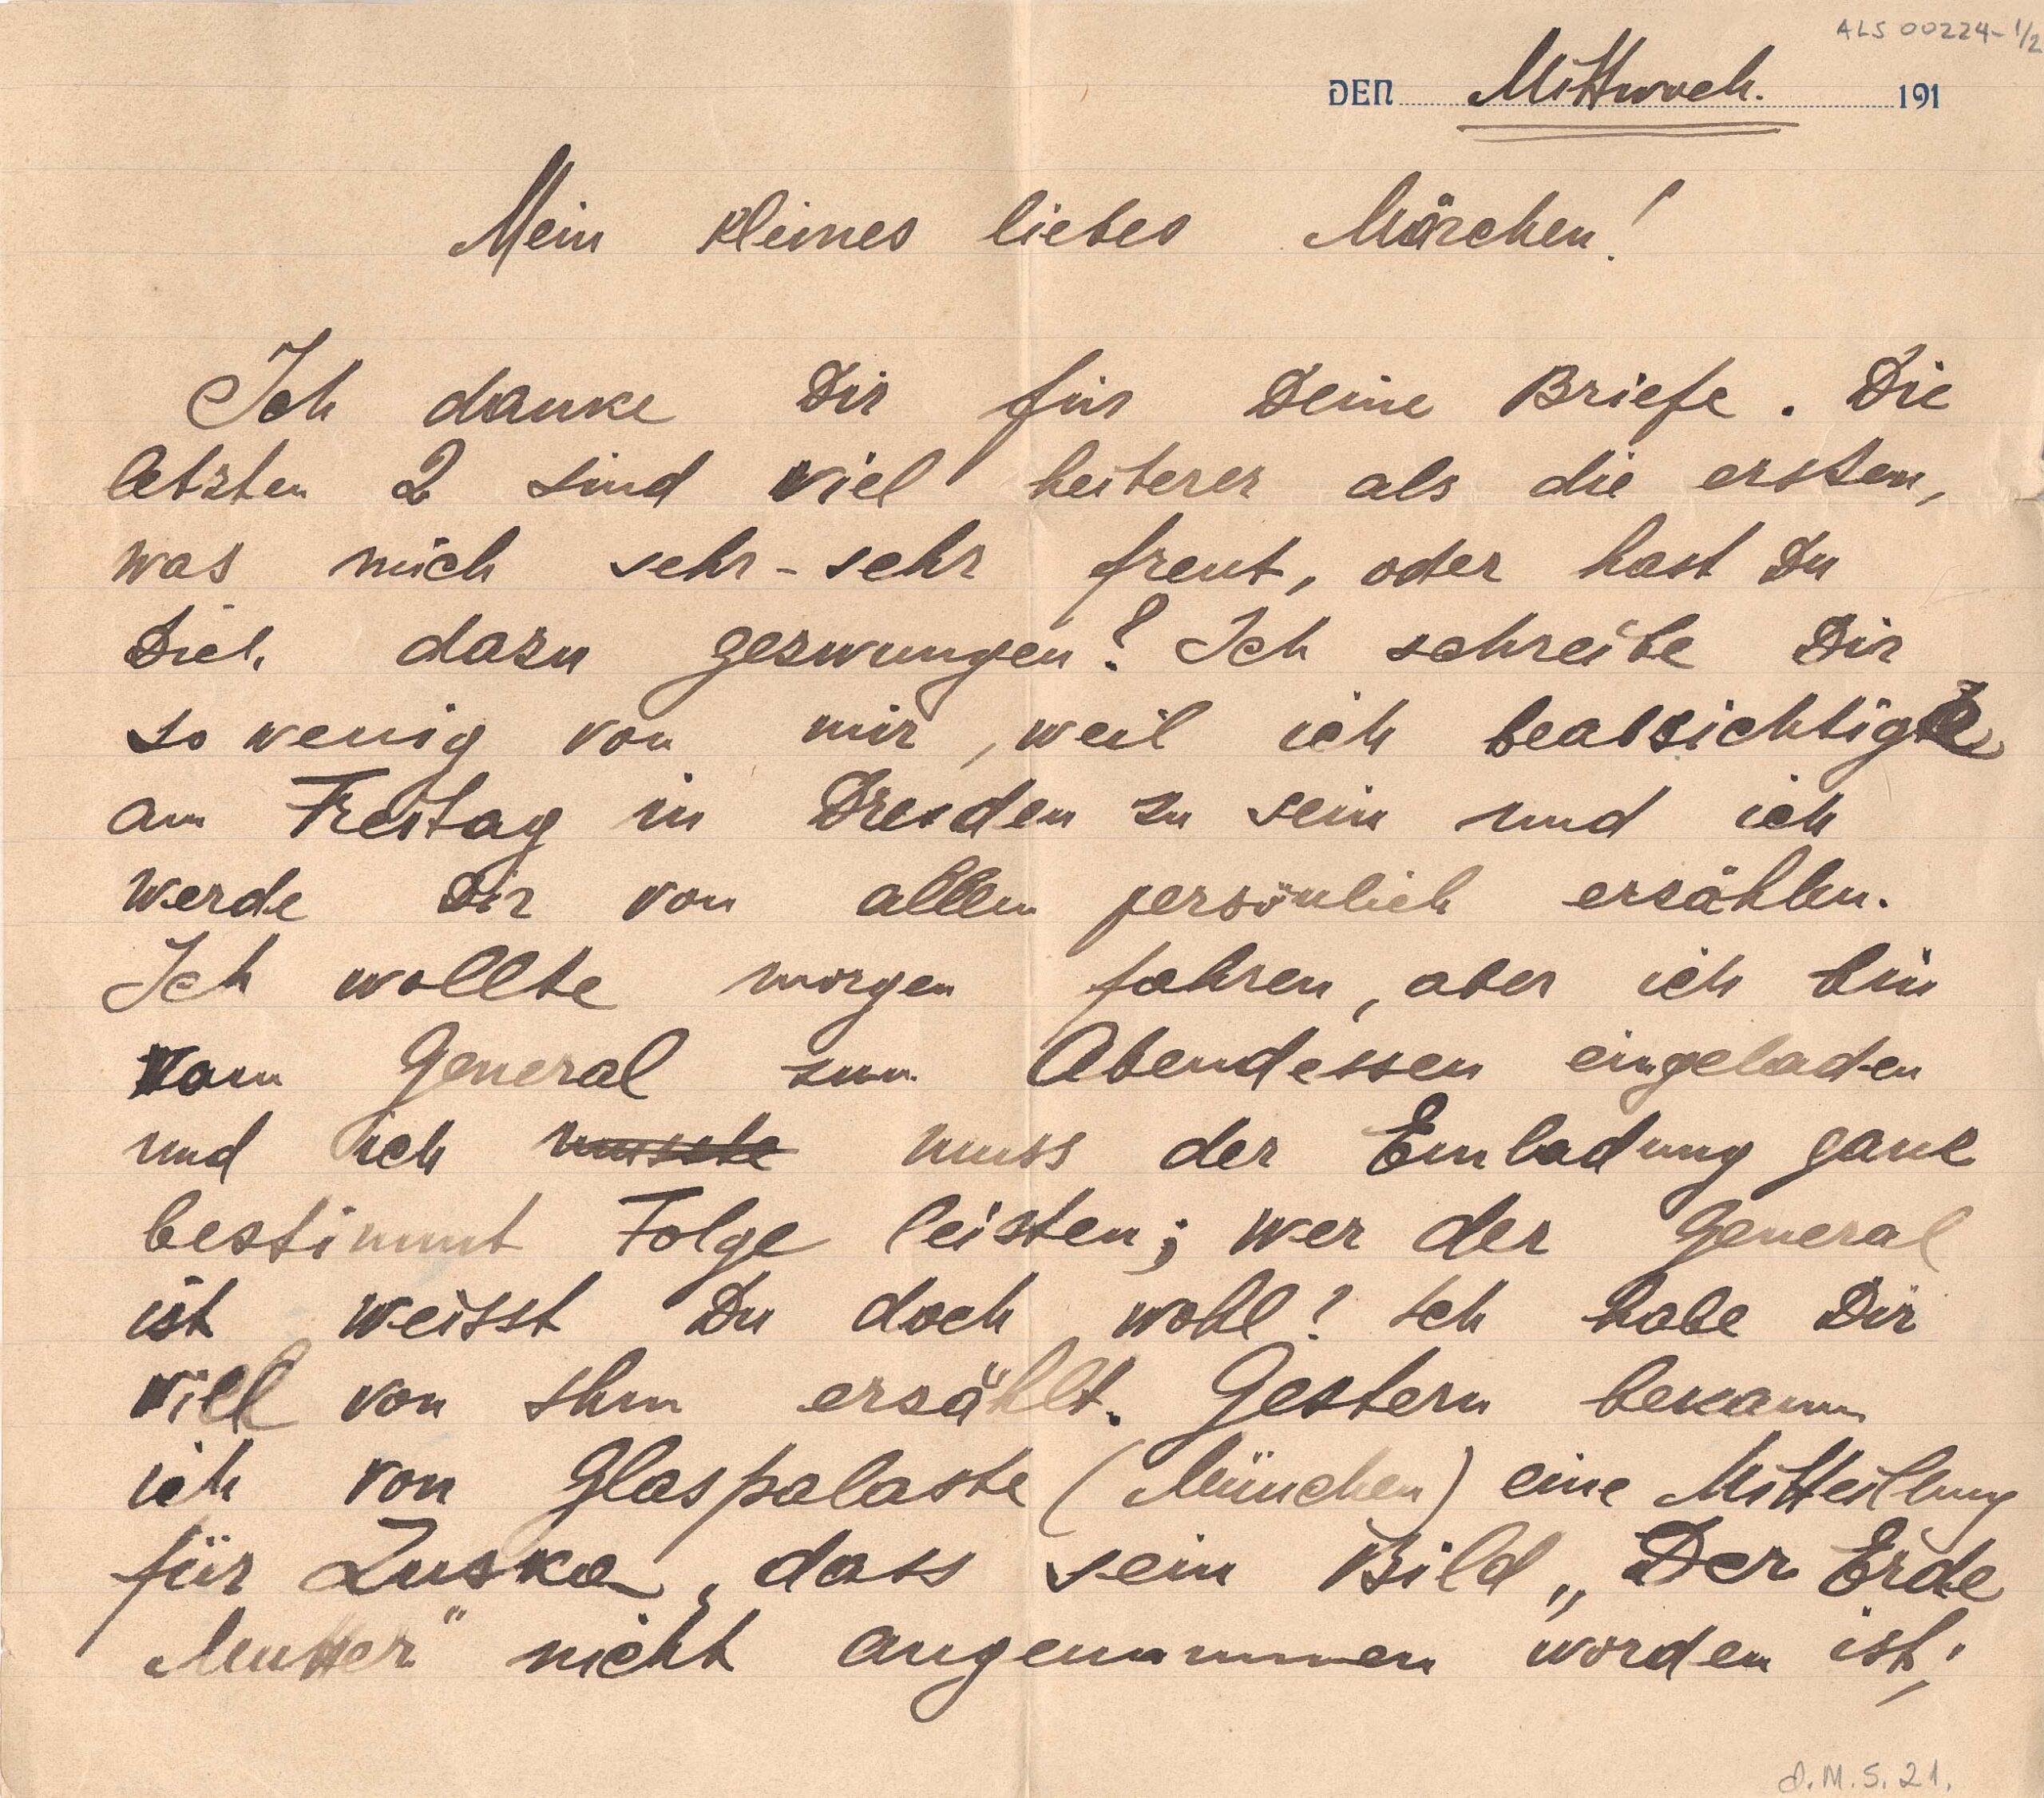 ALS 00224-1/2
DEN Mittwoch. 191
Mein kleines liebes Märchen!
Ich danke Dir für Deine Briefe. Die
letzten 2 sind viel heiterer als die ersten,
was mich sehr-sehr freut, oder hast Du
Dich dazu gezwungen? Ich schreibe Dir
so wenig von mir, weil ich beabsichtigte
am Freitag in Dresden zu sein und ich
werde Dir von allem persönlich erzählen.
Ich wollte morgen fahren, aber ich bin
vom General zum Abendessen eingeladen
und ich musste muss der Einladung ganz
bestimmt Folge leisten; wer der General
ist weisst Du doch wohl? Ich habe Dir
viel von Ihm erzählt. Gestern bekamm
ich von Glaspalaste (München) eine Mitteilung
für Zuska, dass sein Bild „Der Erde
Mutter" nicht angenommen worden ist;
d.M.S.21.